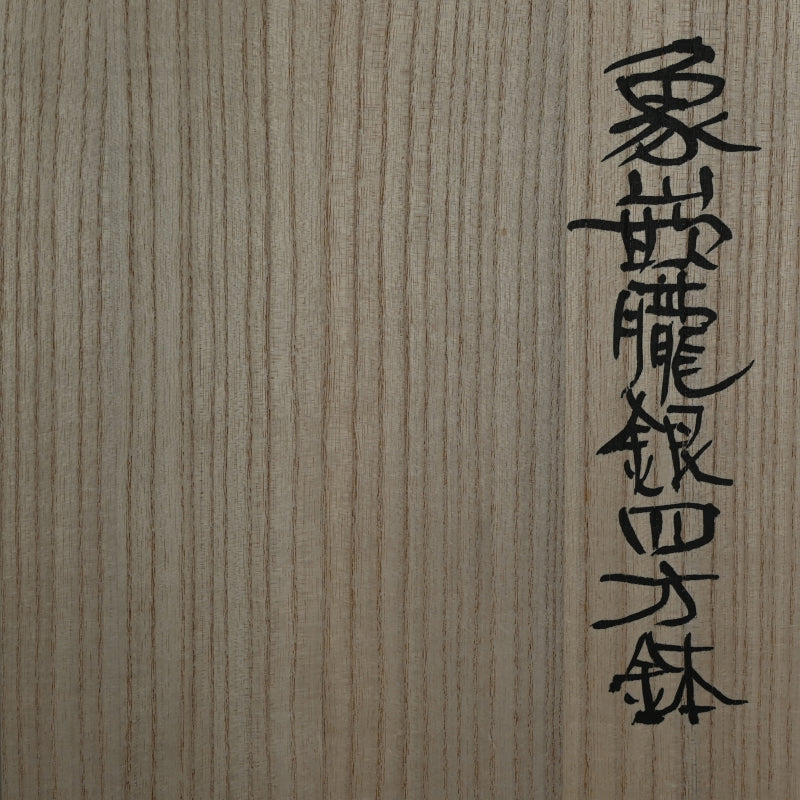 象嵌朧銀四方鉢